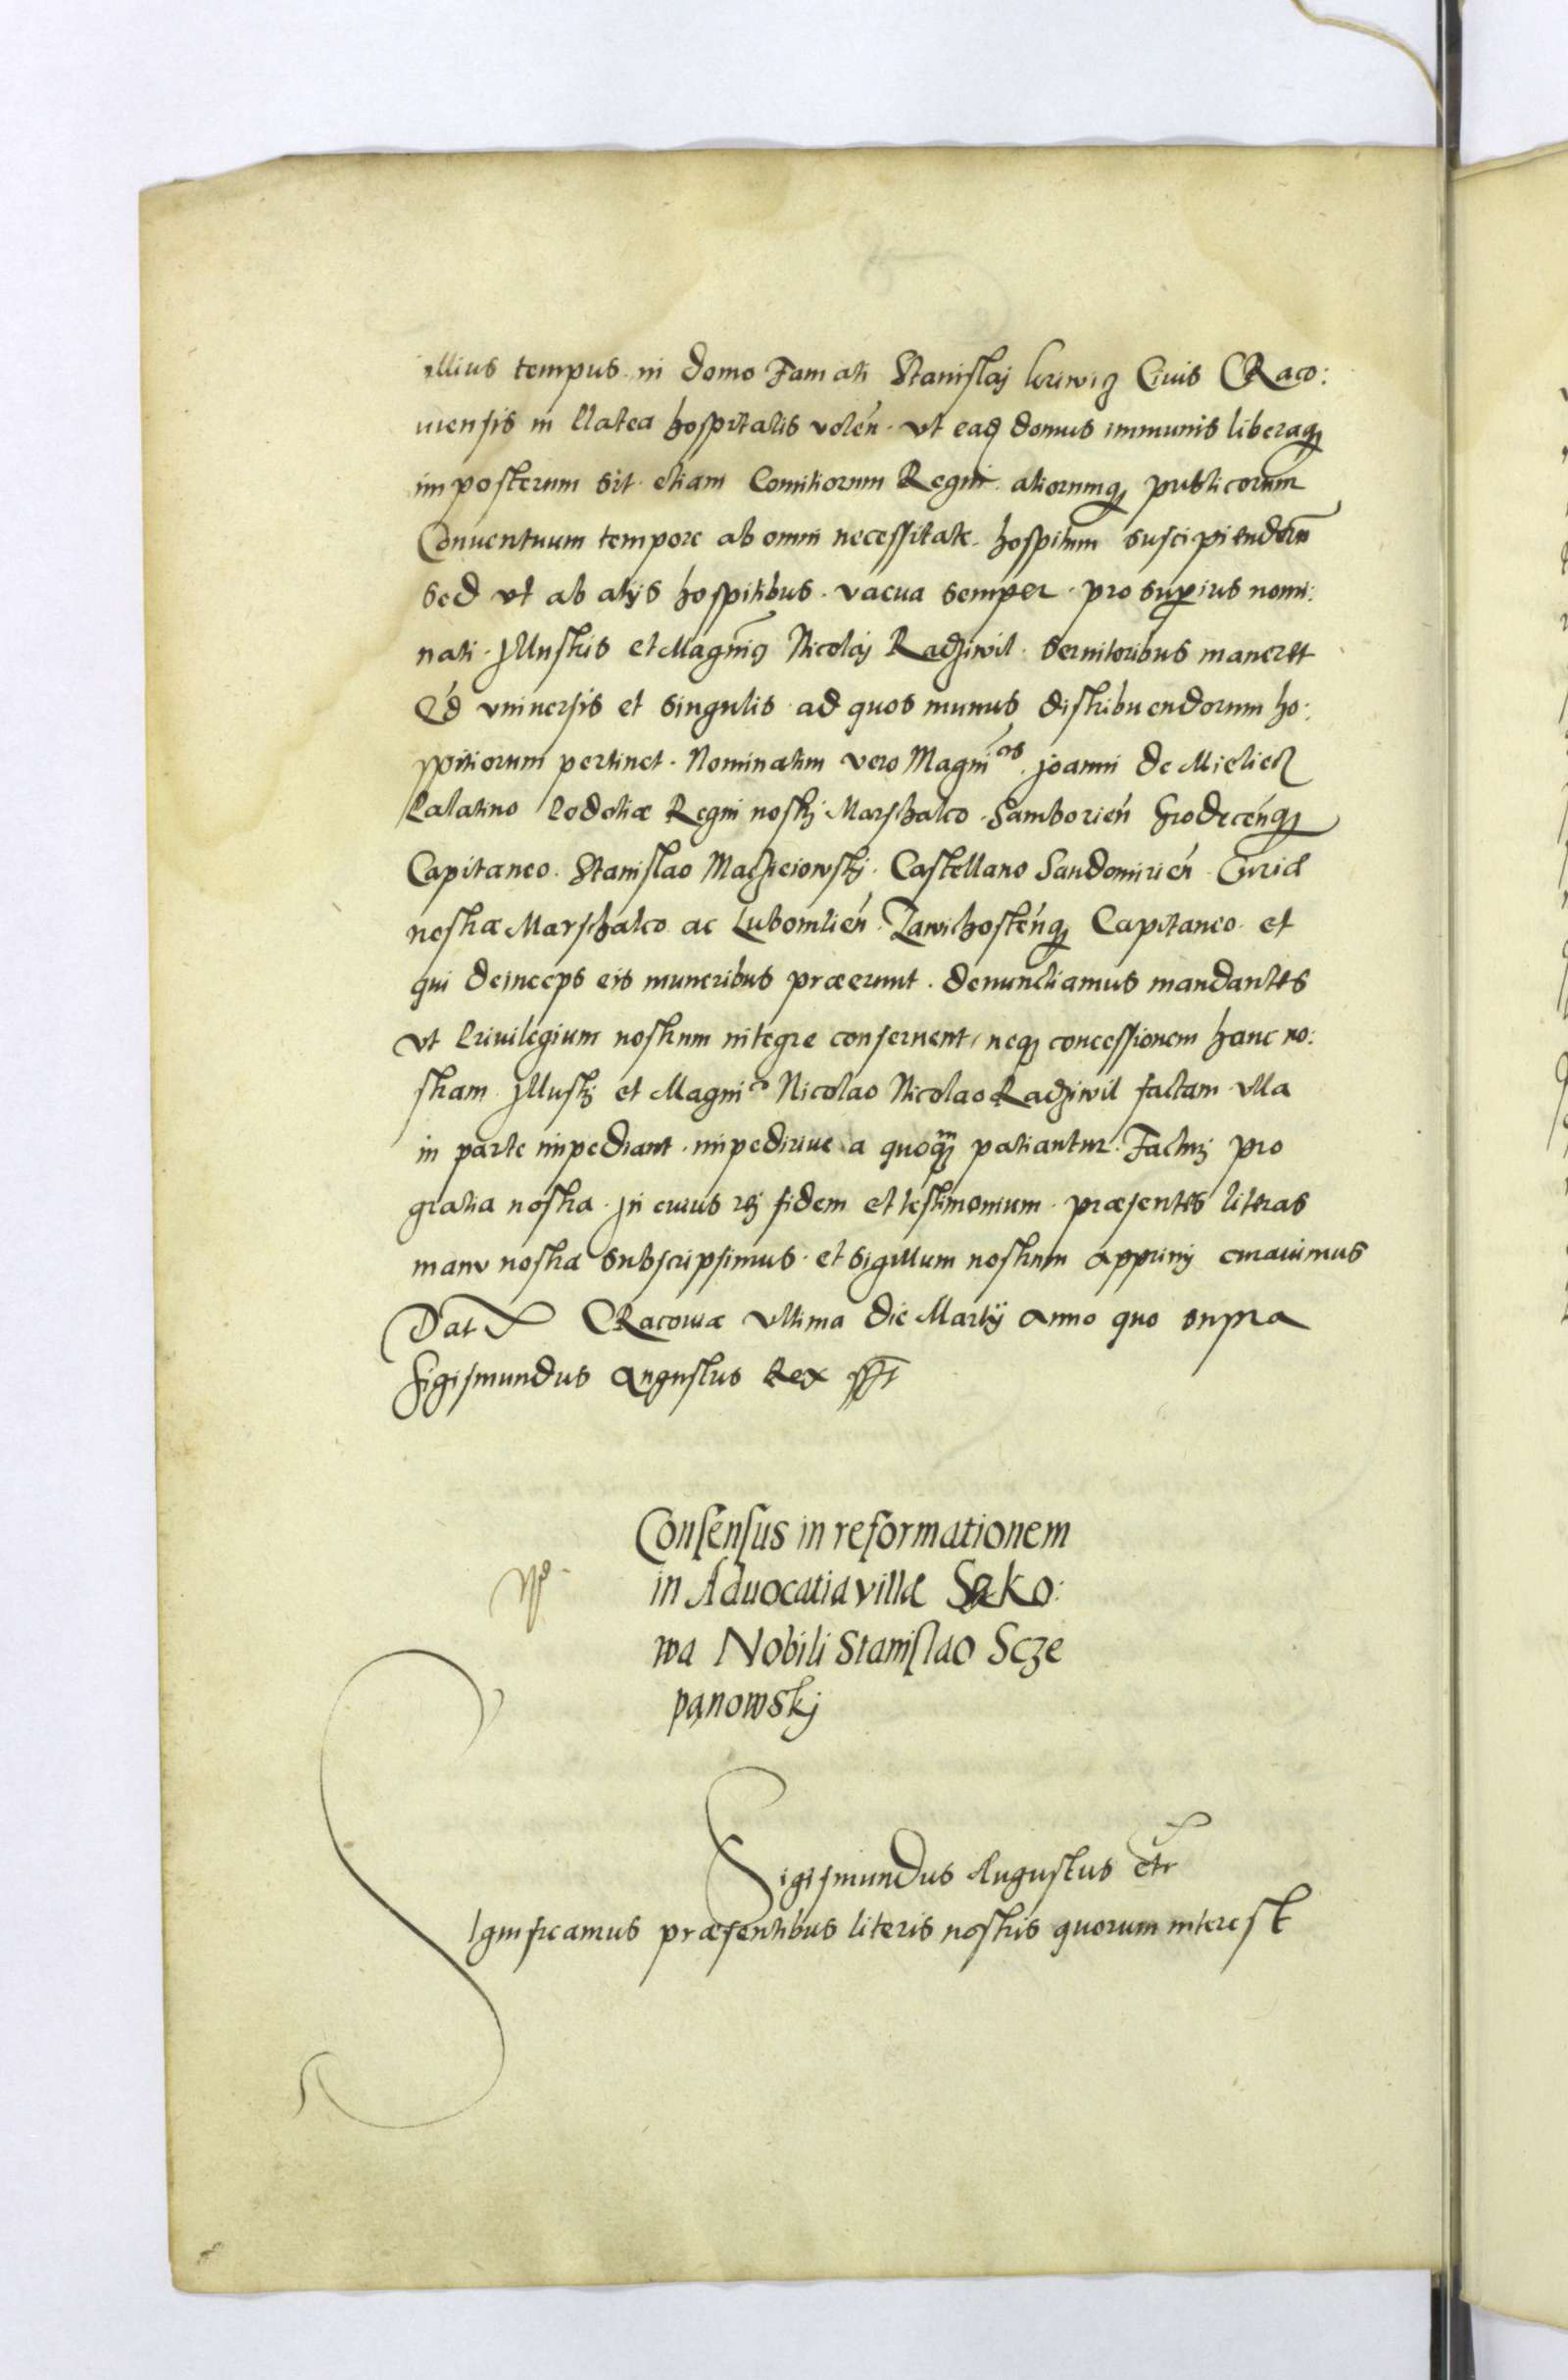 illius tempus in domo Famati Stanislaj Ciuis CRaco:
uiensis in Platea hospitalis volen. vt eadē domus immunis liberaq;
imposterum sit etiam Comitiorum Regni aliorumq; publicorum
Conuentuum tempore ab omni necessitate hospitum suscipiendorū
sed vt ab alijs hospitibus. vacua semper. pro superius nomi:
nati. Jllustris et Magnici Nicolaj Radziwil. seruitoribus maneret
Qd vniuersis et singulis ad quos munus distribuendorum ho:
spitiorum pertinet. Nominatim vero Magnicis. Joanni de Mieliecz
Palatino Podoliæ Regni nostrj Marschalco. Samborien Grodecenq;
Capitaneo. Stanislao Maczieiowskj. Castellano Sandomirien Curiæ
nostræ Marschalco ac Lubomlien. Zawichostenq; Capitaneo et
qui deinceps eis muneribus præerunt. denunctiamus mandantes
vt Priuilegium nostrum integre conseruent, neq; concessionem hanc no:
stram Jllustrj et Magnico Nicolao Nicolao Radziwil factam vlla
in parte impediant. impediriue a quoqm patiantur. Facturj pro
gratia nostra. Jn cuius rej fidem et testimonium. præsentes literas
manu nostra subscripsimus. et sigillum nostrum apprimj curauimus
Dat CRacouiæ vltima die Martij anno quo supra
Sigismundus Augustus Rex sst
Consensus in reformationem
in Aduocatia villæ Sąko:
wa Nobili Stanislao Scze
panowskj
Sigismundus Augustus etc
Significamus præsentibus literis nostris quorum interest